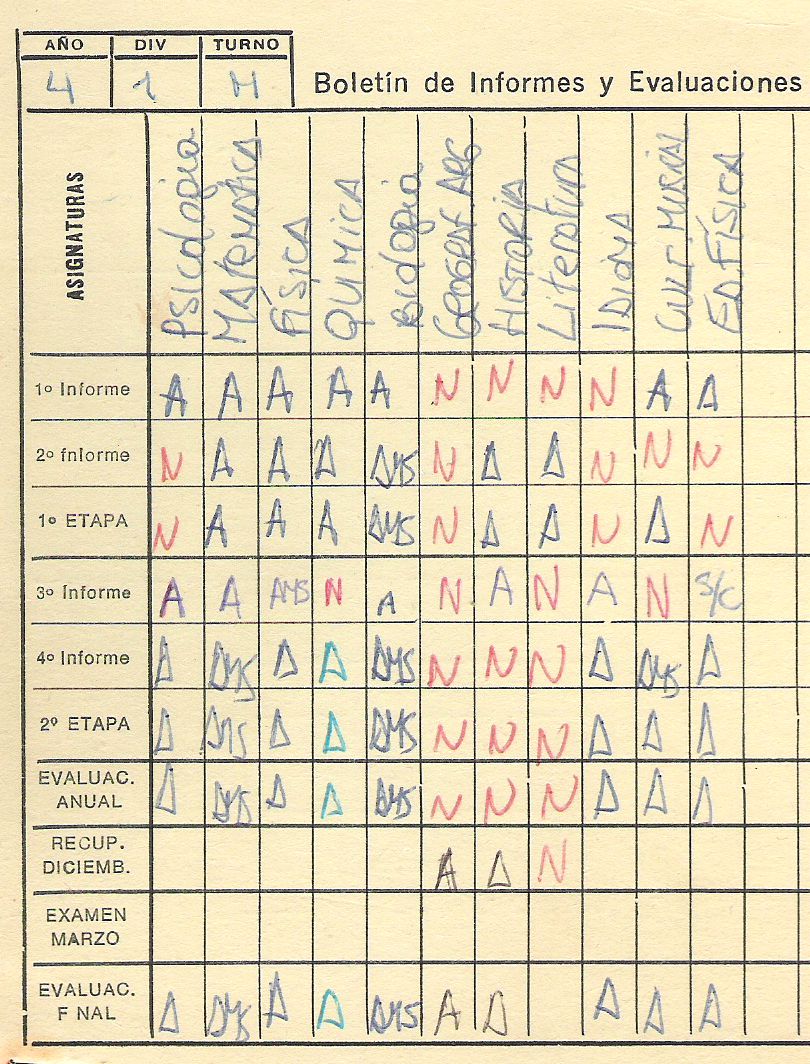 AÑO DIV TURNO
4 1 M
Boletín de Informes y Evaluaciones
ASIGNATURAS Psicologia MATEMATICA FÍSICA QUIMICA Biologia GEOGRAF ARG HISTORIA Literatura IDIOMA CULT. MUSICAL ED. FÍSICA
1º Informe A A A A A N N N N A A
2º fnlorme N A A A AMS N A A N N N
1º ETAPA N A A A AMS N A A N A N
3º Informe A A AMS N A N A N A N S/C
4º Informe A AMS A A AMS N N N A AMS A
2º ETAPA A AMS A A AMS N N N A A A
EVALUAC.
ANUAL A AMS A A AMS N N N A A A
RECUP.
DICIEMB. A A N
EXAMEN
MARZO
EVALUAC.
F NAL A AMS A A AMS A A A A A